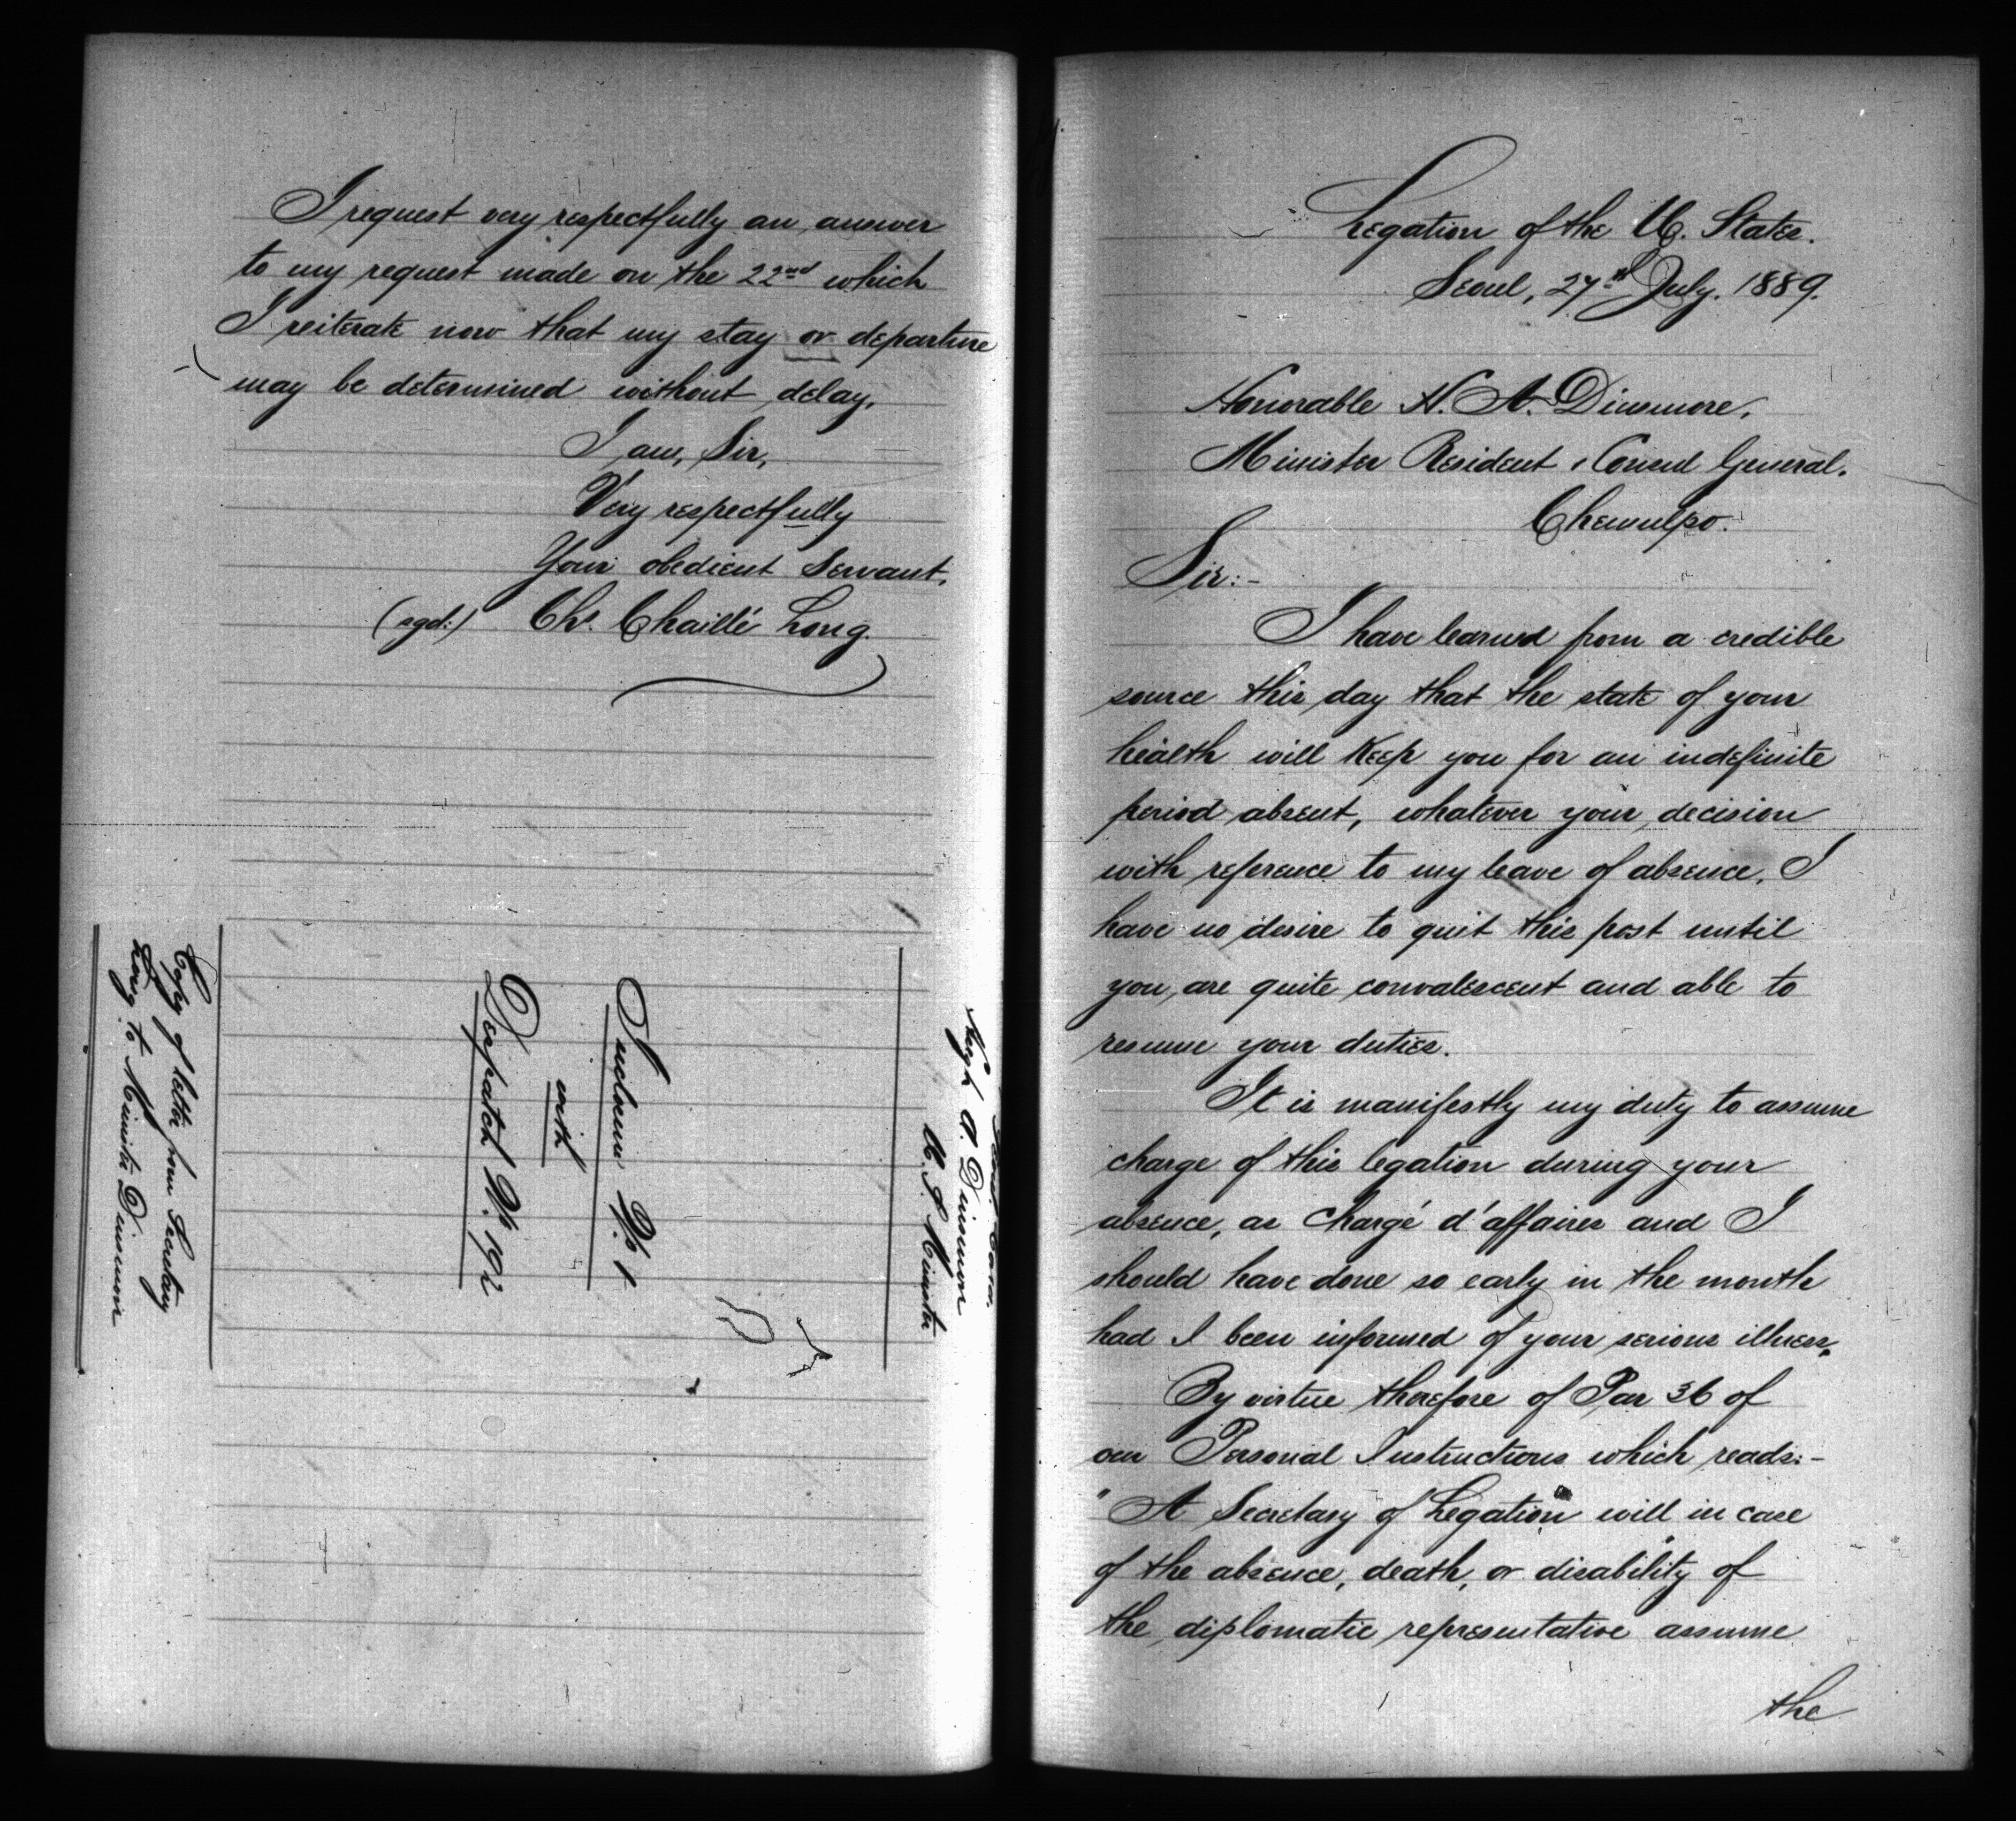 I request very respectfully an answer
to my request made on the 22nd which
I reiterate now that my stay or departure
may be determined without delay.
I am, Sir,
Very respectfully
Your obedient Servant,
(sgd:) Chs. Chaillé Long.
Hugh A. Dinsmore
U. S. Minister
Inclosure No. 1
with
Despatch No. 192
Copy of letter from Secretary
Long to Minister Dinsmore
Legation of the U. States.
Seoul, 27th July. 1889.
Honorable H. A. Dinsmore,
Minister Resident & Consul General.
Chemulpo.
Sir:-
I have learned from a credible
source this day that the state of your
health will keep you for an indefinite
period absent, whatever your decision
with reference to my leave of absence, I
have no desire to quit this post until
you are quite convalescent and able to
resume your duties.
It is manifestly my duty to assume
charge of this legation during your
absence, as Chargé d'affaires and I
should have done so early in the month
had I been informed of your serious illness.
By virtue therefore of Par 36 of
our Personal Instructions which reads:-
"A Secretary of Legation" will in case
of the absence, death, or disability of
the diplomatic representative assume
the